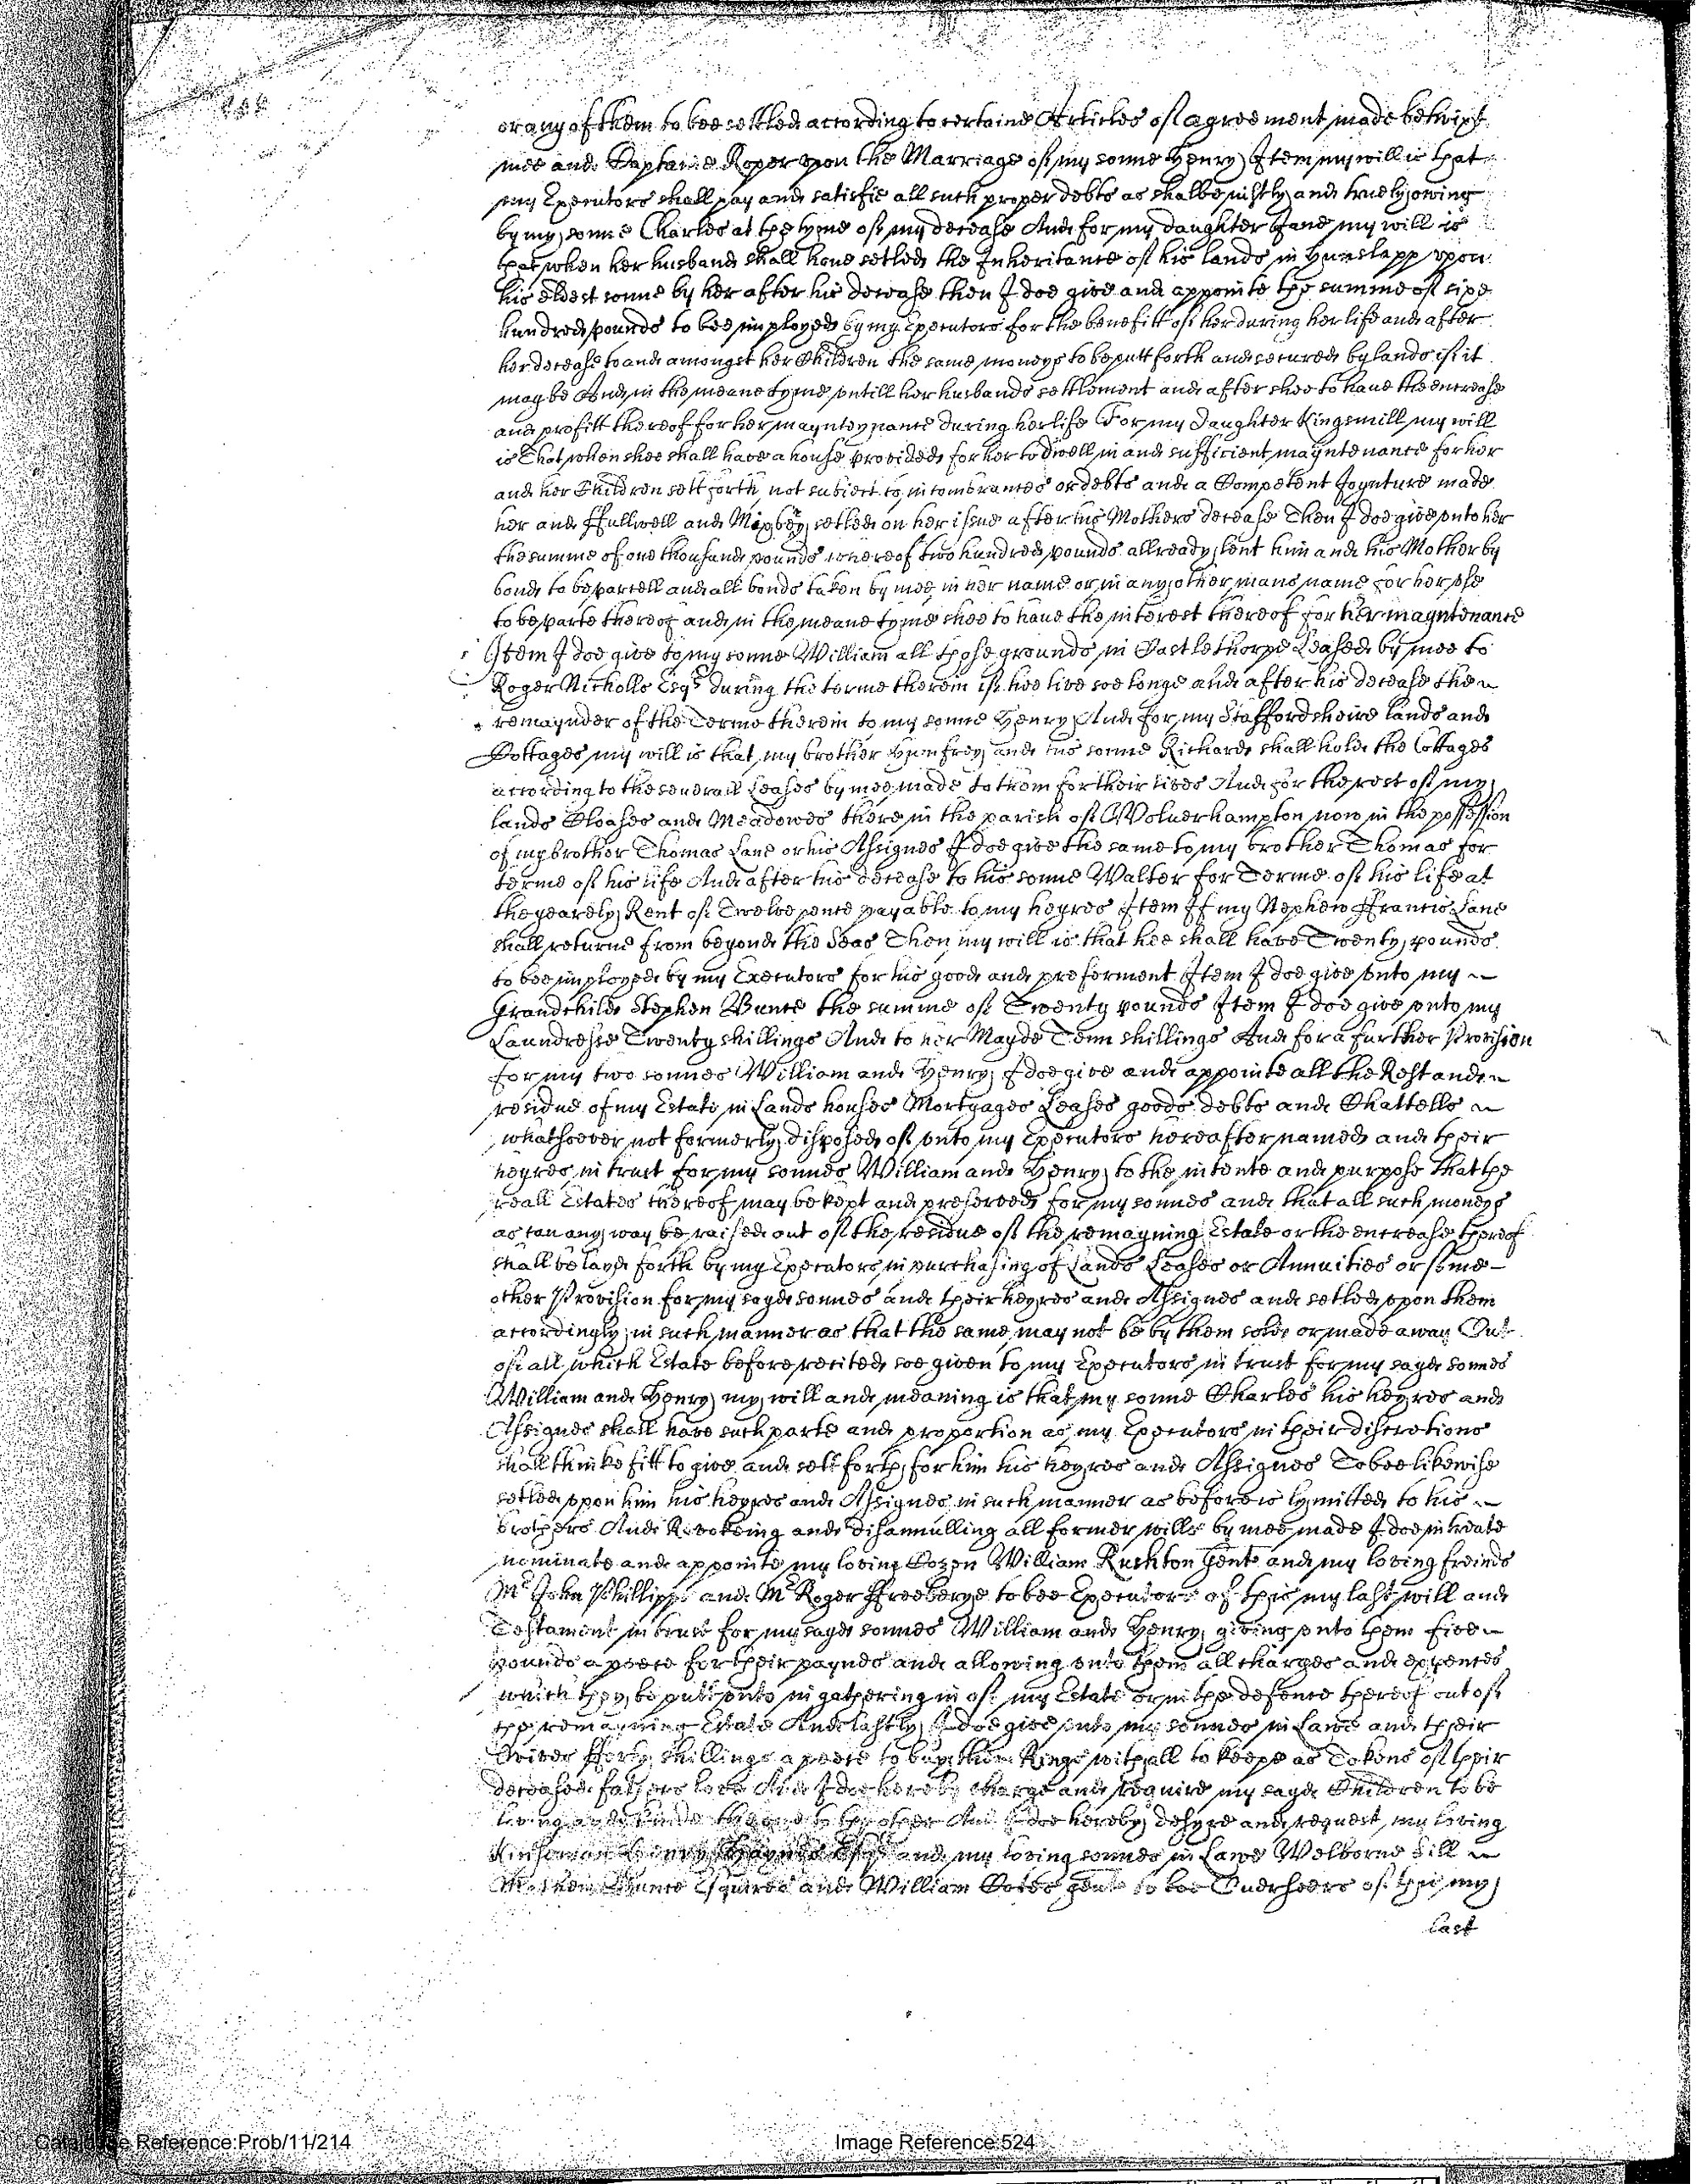 or any of them to bee setled according to certaine Articles of agreement made betwixt
mee and Captaine Roper vpon the Marriage of my sonne Henry Item my will is that
my Executors shall pay and satisfie all such proper debts as shalbe iustly and truely owing
by my sonne Charles at the tyme of my decease And for my daughter Jane my will is
that when her husband shall haue setled the Inheritance of his lands in Hanslapp vpon
his eldest sonne by her after his decease then I doe give and appointe the summe of sixe
hundred pounds to bee imployed by my Executors for the benefitt of her during her life and after
her decease to and amongst her Children the same moneys to be putt forth and secured by lands if it
may be And in the meane tyme vntill her husbands settlement and after shee to haue the encrease
and profitt thereof for her maynteynance during her life For my Daughter Kingsmill my will
is That when shee shall have a house provided for her to dwell in and sufficient mayntenance for her
and her Children sett forth not subiect to incombrances or debts and a Competent Joynture made
her and ffullwell and Mixbey setled on her issue after his Mothers decease Then I doe give vnto her
the summe of one thousand pounds whereof two hundred pounds allready lent him and his Mother by
bond to be parcell and all bonds taken by mee in her name or in any other mans name for her vse
to be parte thereof and in the meane tyme shee to haue the interest thereof for her mayntenance
Item I doe give to my sonne William all those grounds in Castlethorpe Leased by mee to
Roger Nicholls Esqr during the terme therein if hee live soe longe and after his decease the
remaynder of the Terme therein to my sonne Henry And for my Staffordsheire lands and
Cottages my will is that my brother Humfrey and his sonne Richard shall hold the Cottages
according to the severall Leases by mee made to them for their lives And for the rest of my
lands Closes and Meadowes there in the parish of Wolverhampton now in the possession
of my brother Thomas Lane or his Assignes I doe give the same to my brother Thomas for
terme of his life And after his decease to his sonne Walter for Terme of his life at
the yearely Rent of Twelve pence payable to my heyres Item If my Nephew ffrancis Lane
shall returne from beyond the Seas Then my will is that hee shall have Twenty pounds
to bee imployed by my Executors for his good and preferment Item I doe give vnto my
Grandchild Stephen Bunce the summe of Twenty pounds Item I doe give vnto my
Laundresse Twenty shillings And to her Mayde Tenn shillings And for a further Provision
for my two sonnes William and Henry I doe give and appointe all the Rest and
residue of my Estate in Lands houses Mortgages Leases goods debts and Chattells
whatsoever not formerly disposed of vnto my Executors hereafter named and their
heyres in trust for my sonnes William and Henry to the intente and purpose That the
reall Estates thereof may be kept and preserved for my sonnes and that all such moneys
as can any way be raised out of the residue of the remayning Estate or the encrease thereof
shall be layd forth by my Executors in purchasing of Lands Leases or Annuities or some
other Provision for my sayd sonnes and their heyres and Assignes and setled vpon them
accordingly in such manner as that the same may not be by them sold or made away Out
of all which Estate before recited soe given to my Executors in trust for my sayd sonnes
William and Henry my will and meaning is that my sonne Charles his heyres and
Assignes shall have such parte and proportion as my Executors in their discretions
shall thinke fitt to give and sett forth for him his heyres and Assignes To bee likewise
setled vpon him his heyres and Assignes in such manner as before is lymitted to his
brothers And Revokeing and disannulling all former wills by mee made I doe intreate
nominate and appointe my loving Cozen William Rushton Gent and my loving freinds
Mr John Phillipps and Mr Roger ffreeberye to bee Executors of this my last will and
Testament in trust for my sayd sonnes William and Henry giving vnto them five
pounds a peece for their paynes and allowing vnto them all charges and expences
which they be putt vnto in gathering in of my Estate or in the defence thereof out of
the remayning Estate And lastly I doe give vnto my sonnes in Lawe and their
Wives fforty shillings a peece to buy them Rings withall to keepe as Tokens of their
deceased fathers love And I doe hereby charge and require my sayd Children to be
loving and kinde the one to the other And I doe hereby desyre and request my loving
Kinsman Henry and my loving sonnes in Lawe Welborne Sill
Bunce Esquires and William Cotes gent to bee Overseers of this my
last
Catalogue Reference:Prob/11/214
Image Reference:524